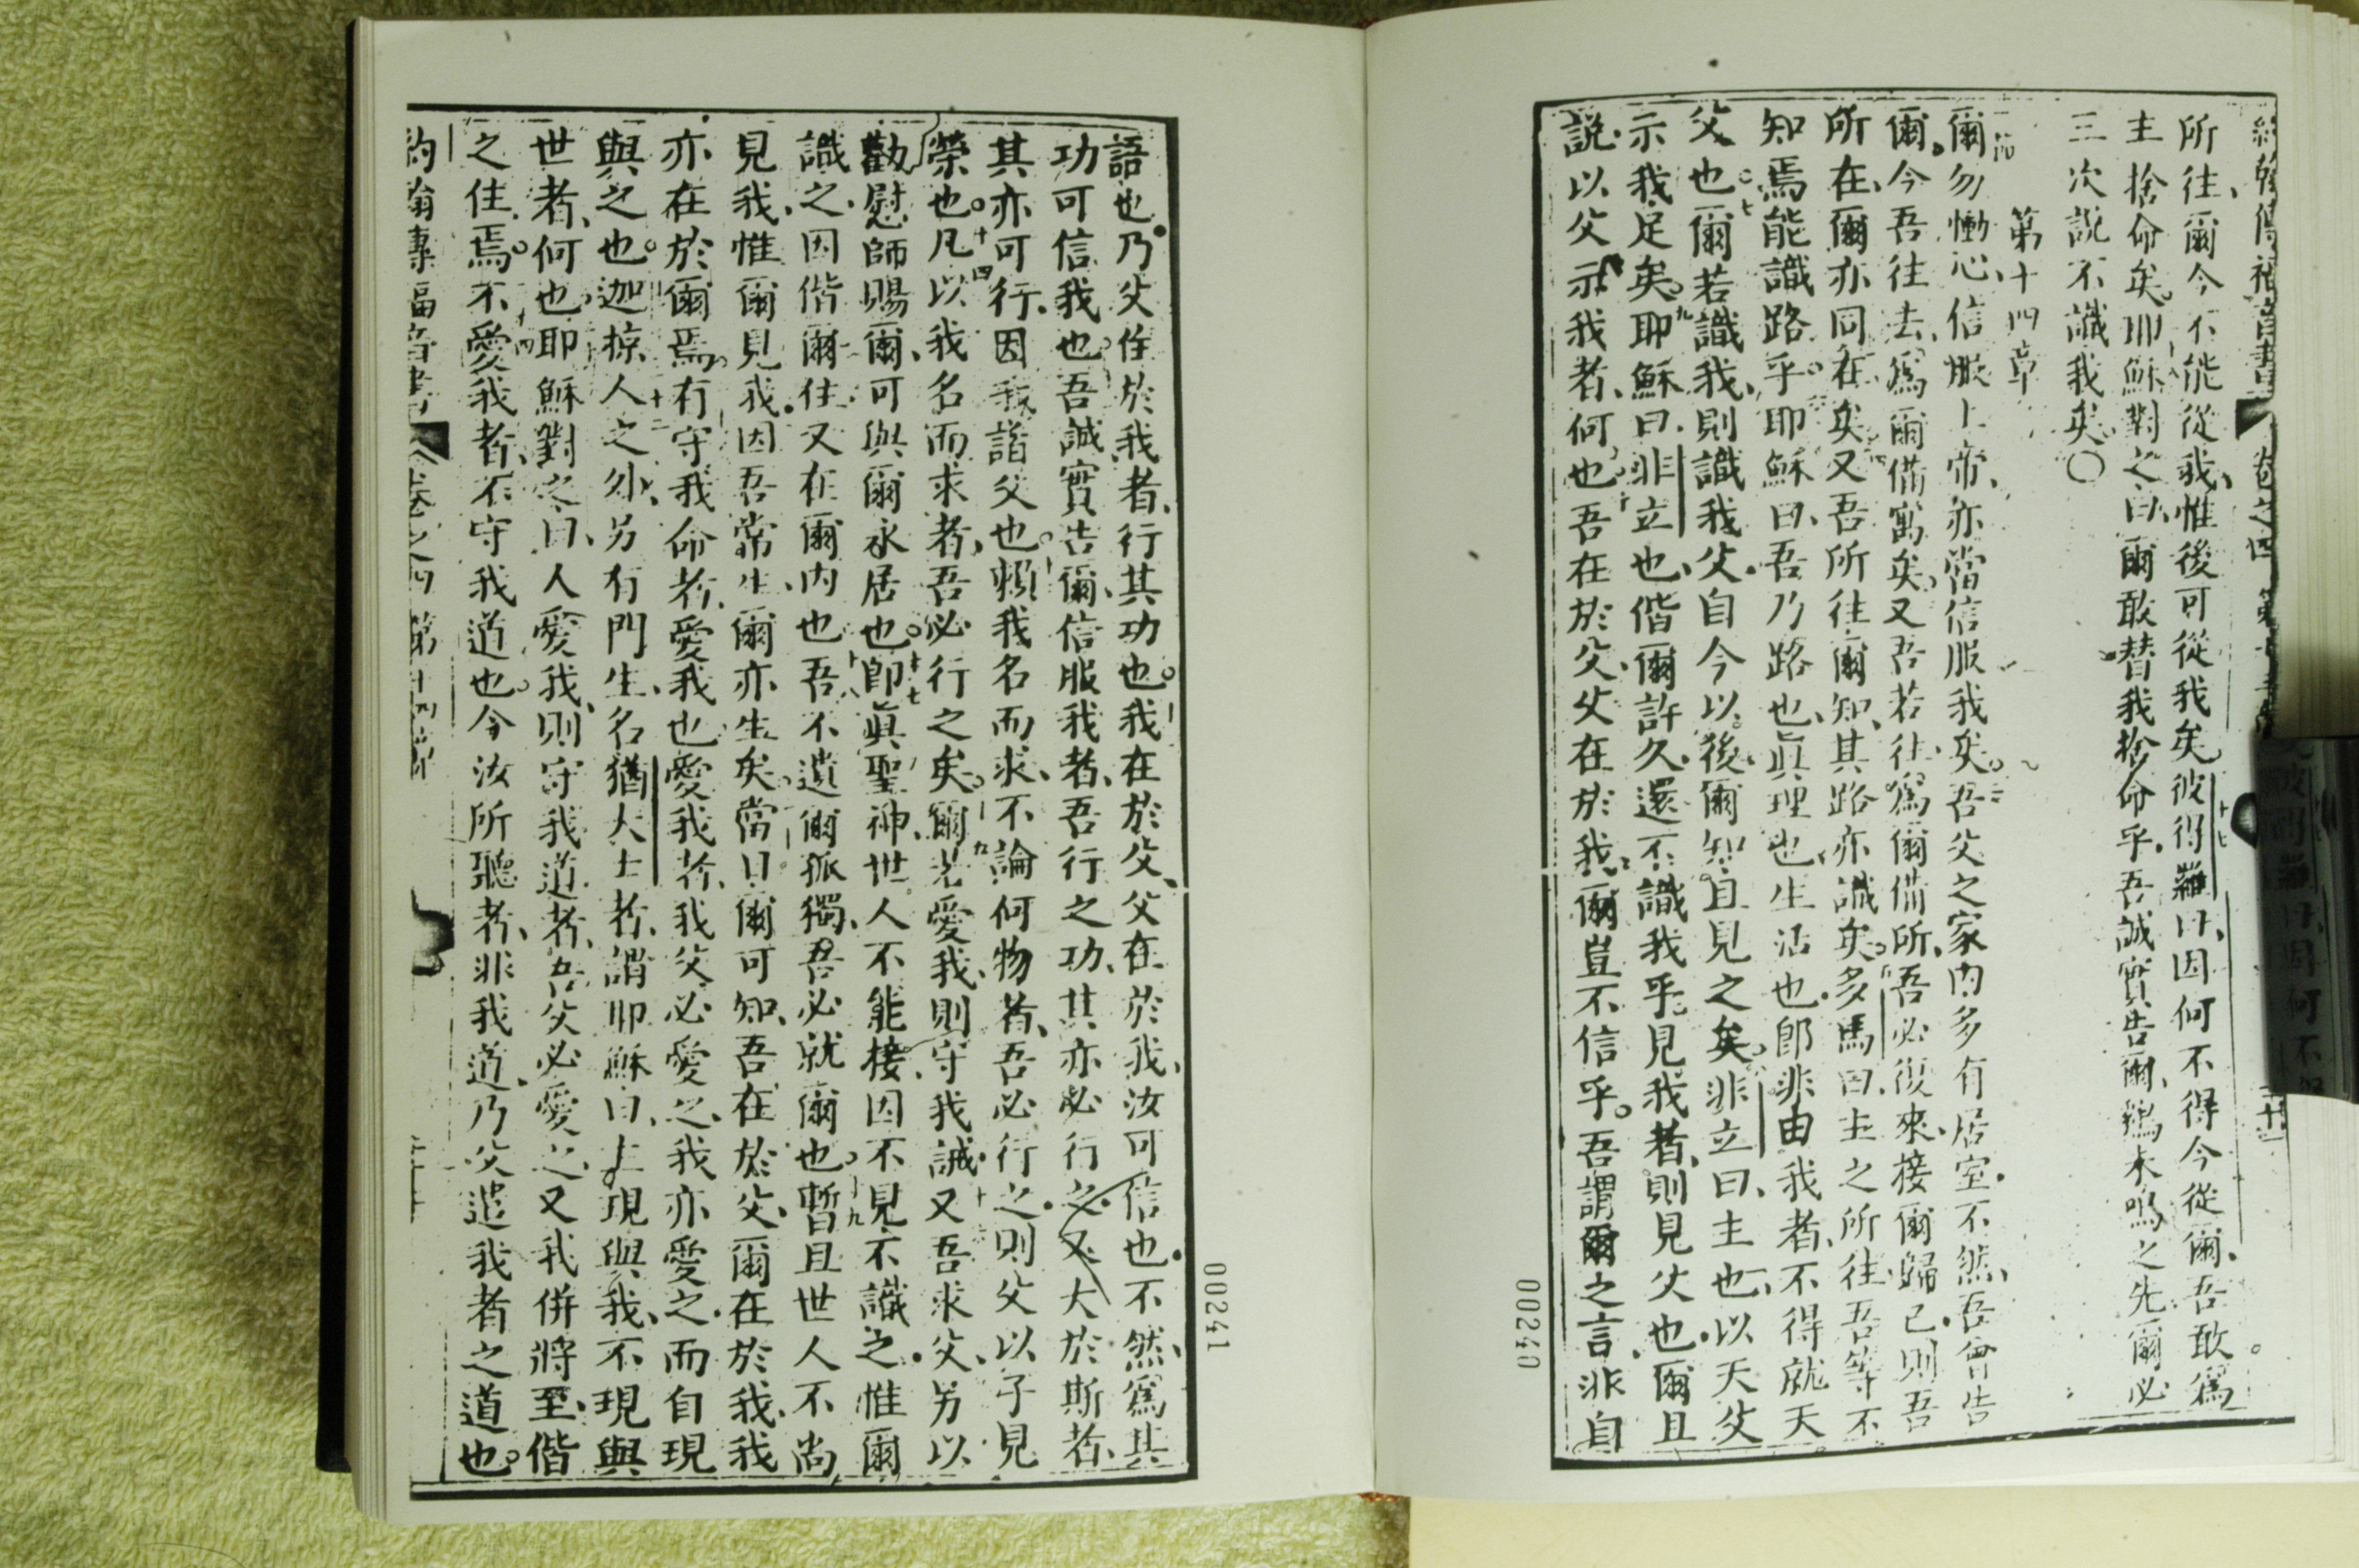 約翰傳福音書 卷之四
所徃爾今不能從我惟後可從我矣彼得羅曰因何不得今從爾吾敢爲
主捨命矣耶穌對之曰爾敢替我捨命乎吾誠實告爾鷄未鳴之先爾必
三次說不識我矣〇
第十四章
爾勿慟心信服上帝亦當信服我矣吾父之家內多有居室不然吾曾告
爾今吾徃去爲爾備寓矣又吾若徃爲爾備所吾必復來接爾歸己則吾
所在爾亦同在矣又吾所徃爾知其路亦識矣多馬曰主之所徃吾等不
知焉能識路乎耶穌曰吾乃路也眞理也生活也卽非由我者不得就天
父也爾若識我則識我父自今以後爾知且見之矣非立曰主也以天父
示我足矣耶穌曰非立也偕爾許久還不識我乎見我者則見父也爾且
說以父示我者何也吾在於父父在於我爾豈不信乎吾謂爾之言非自
00240
00241
語也乃父住於我者行其功也我在於父父在於我汝可信也不然爲其
功可信我也吾誠實告爾信服我者吾行之功其亦必行之又大於斯者
其亦可行因我詣父也賴我名而求不論何物者吾必行之則父以子見
榮也凡以我名而求者吾必行之矣爾若愛我則守我誡又吾求父另以
勸慰師賜爾可與爾永居也卽眞聖神世人不能接因不見不識之惟爾
識之因偕爾住又在爾內也吾不遺爾孤獨吾必就爾也暫且世人不尚
見我惟爾見我因吾常生爾亦生矣當日爾可知吾在於父爾在於我我
亦在於爾焉有守我命者愛我也愛我者我父必愛之我亦愛之而自現
與之也迦掠人之外另有門生名猶大士者謂耶穌曰主現與我不現與
世者何也耶穌對之曰人愛我則守我道者吾父必愛之又我併將至偕
之住焉不愛我者不守我道也今汝所聽者非我道乃父遣我者之道也
約翰傳福音書 卷之四 第十四章